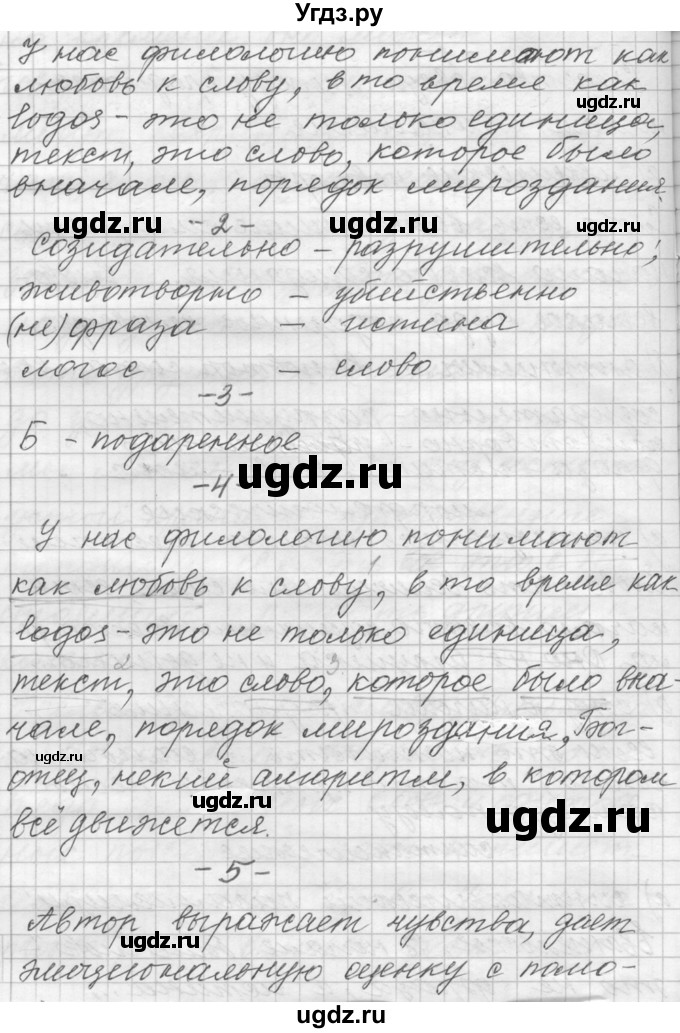 Угдз.ру
У нас филологию понимают как
любовь к слову, в то время как
ugdz.ru
logos - это не только единица,
текст, это слово, которое было
вначале, порядок мироздания.
ugdz.ru
-2-
ugdz.ru
ugdz.ru
Созидательно - разрушительно;
животворно - убийственно
(не) фраза - истина
логос - слово
-3-
Б - подаренное
ugdz.ru
-4-
У нас филологию понимают
как любовь к слову, в то время как
ugdz.ru
logos - это не только единица,
2 3
текст, это слово, которое было вна-
чале, порядок мироздания, Бог-
ugdz.ru
отец, некий алгоритм, в котором
ugdz.ru
ugdz.ru
всё движется.
-5-
Автор выражает чувства, дает
ugdz.ru
эмоциональную оценку с помо-
ugdz.ru